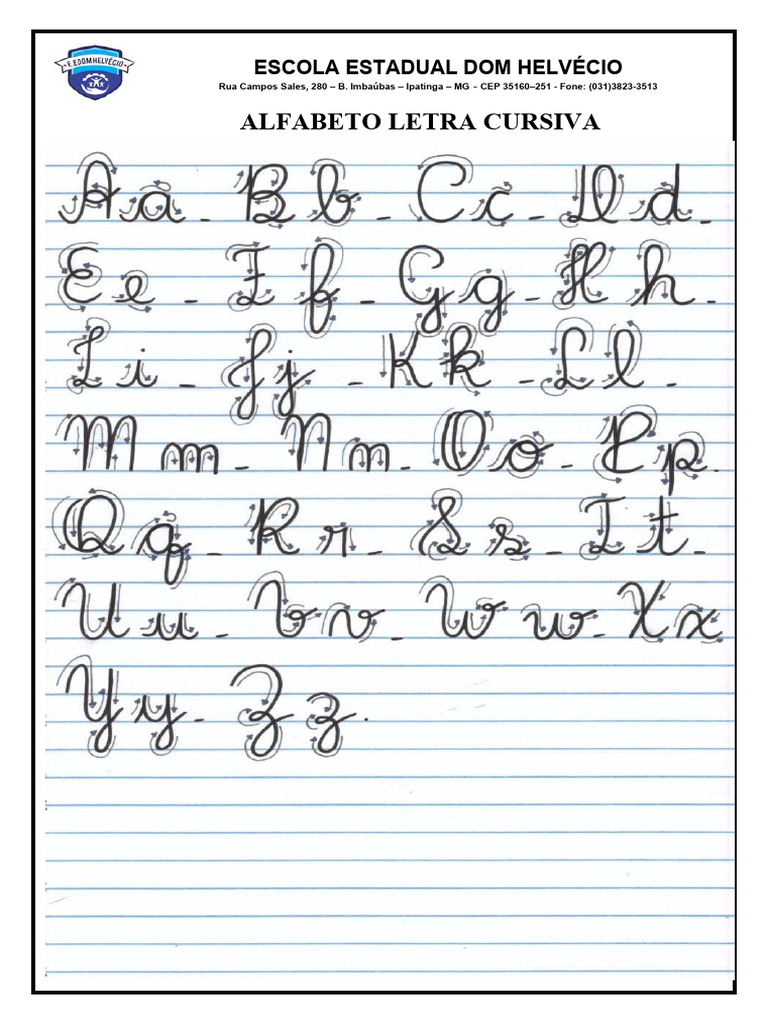 E.E.DOM HELVÉCIO
ESCOLA ESTADUAL DOM HELVÉCIO
Rua Campos Sales, 280 – B. Imbaúbas – Ipatinga – MG - CEP 35160–251 - Fone: (031)3823-3513
ALFABETO LETRA CURSIVA
Aa - Bb - Cc - Dd -
Ee - Ff - Gg - Hh -
Ii - Jj - Kk - Ll -
Mm - Nn - Oo - Pp.
Qq - Rr - Ss - Tt -
Uu - Vv - Ww - Xx
Yy - Zz.